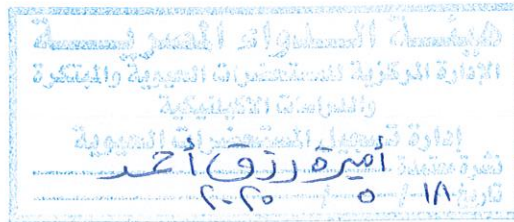 هيئة الدواء المصرية
الإدارة المركزية للمستحضرات الحيوية والمبتكرة
والدراسات الاكلينيكية
إدارة تسجيل المستحضرات الحيوية
نشرة معتمدة أميرة رزق أحمد
تاريخ ١٨ / ٥ / ٢٠٢٠